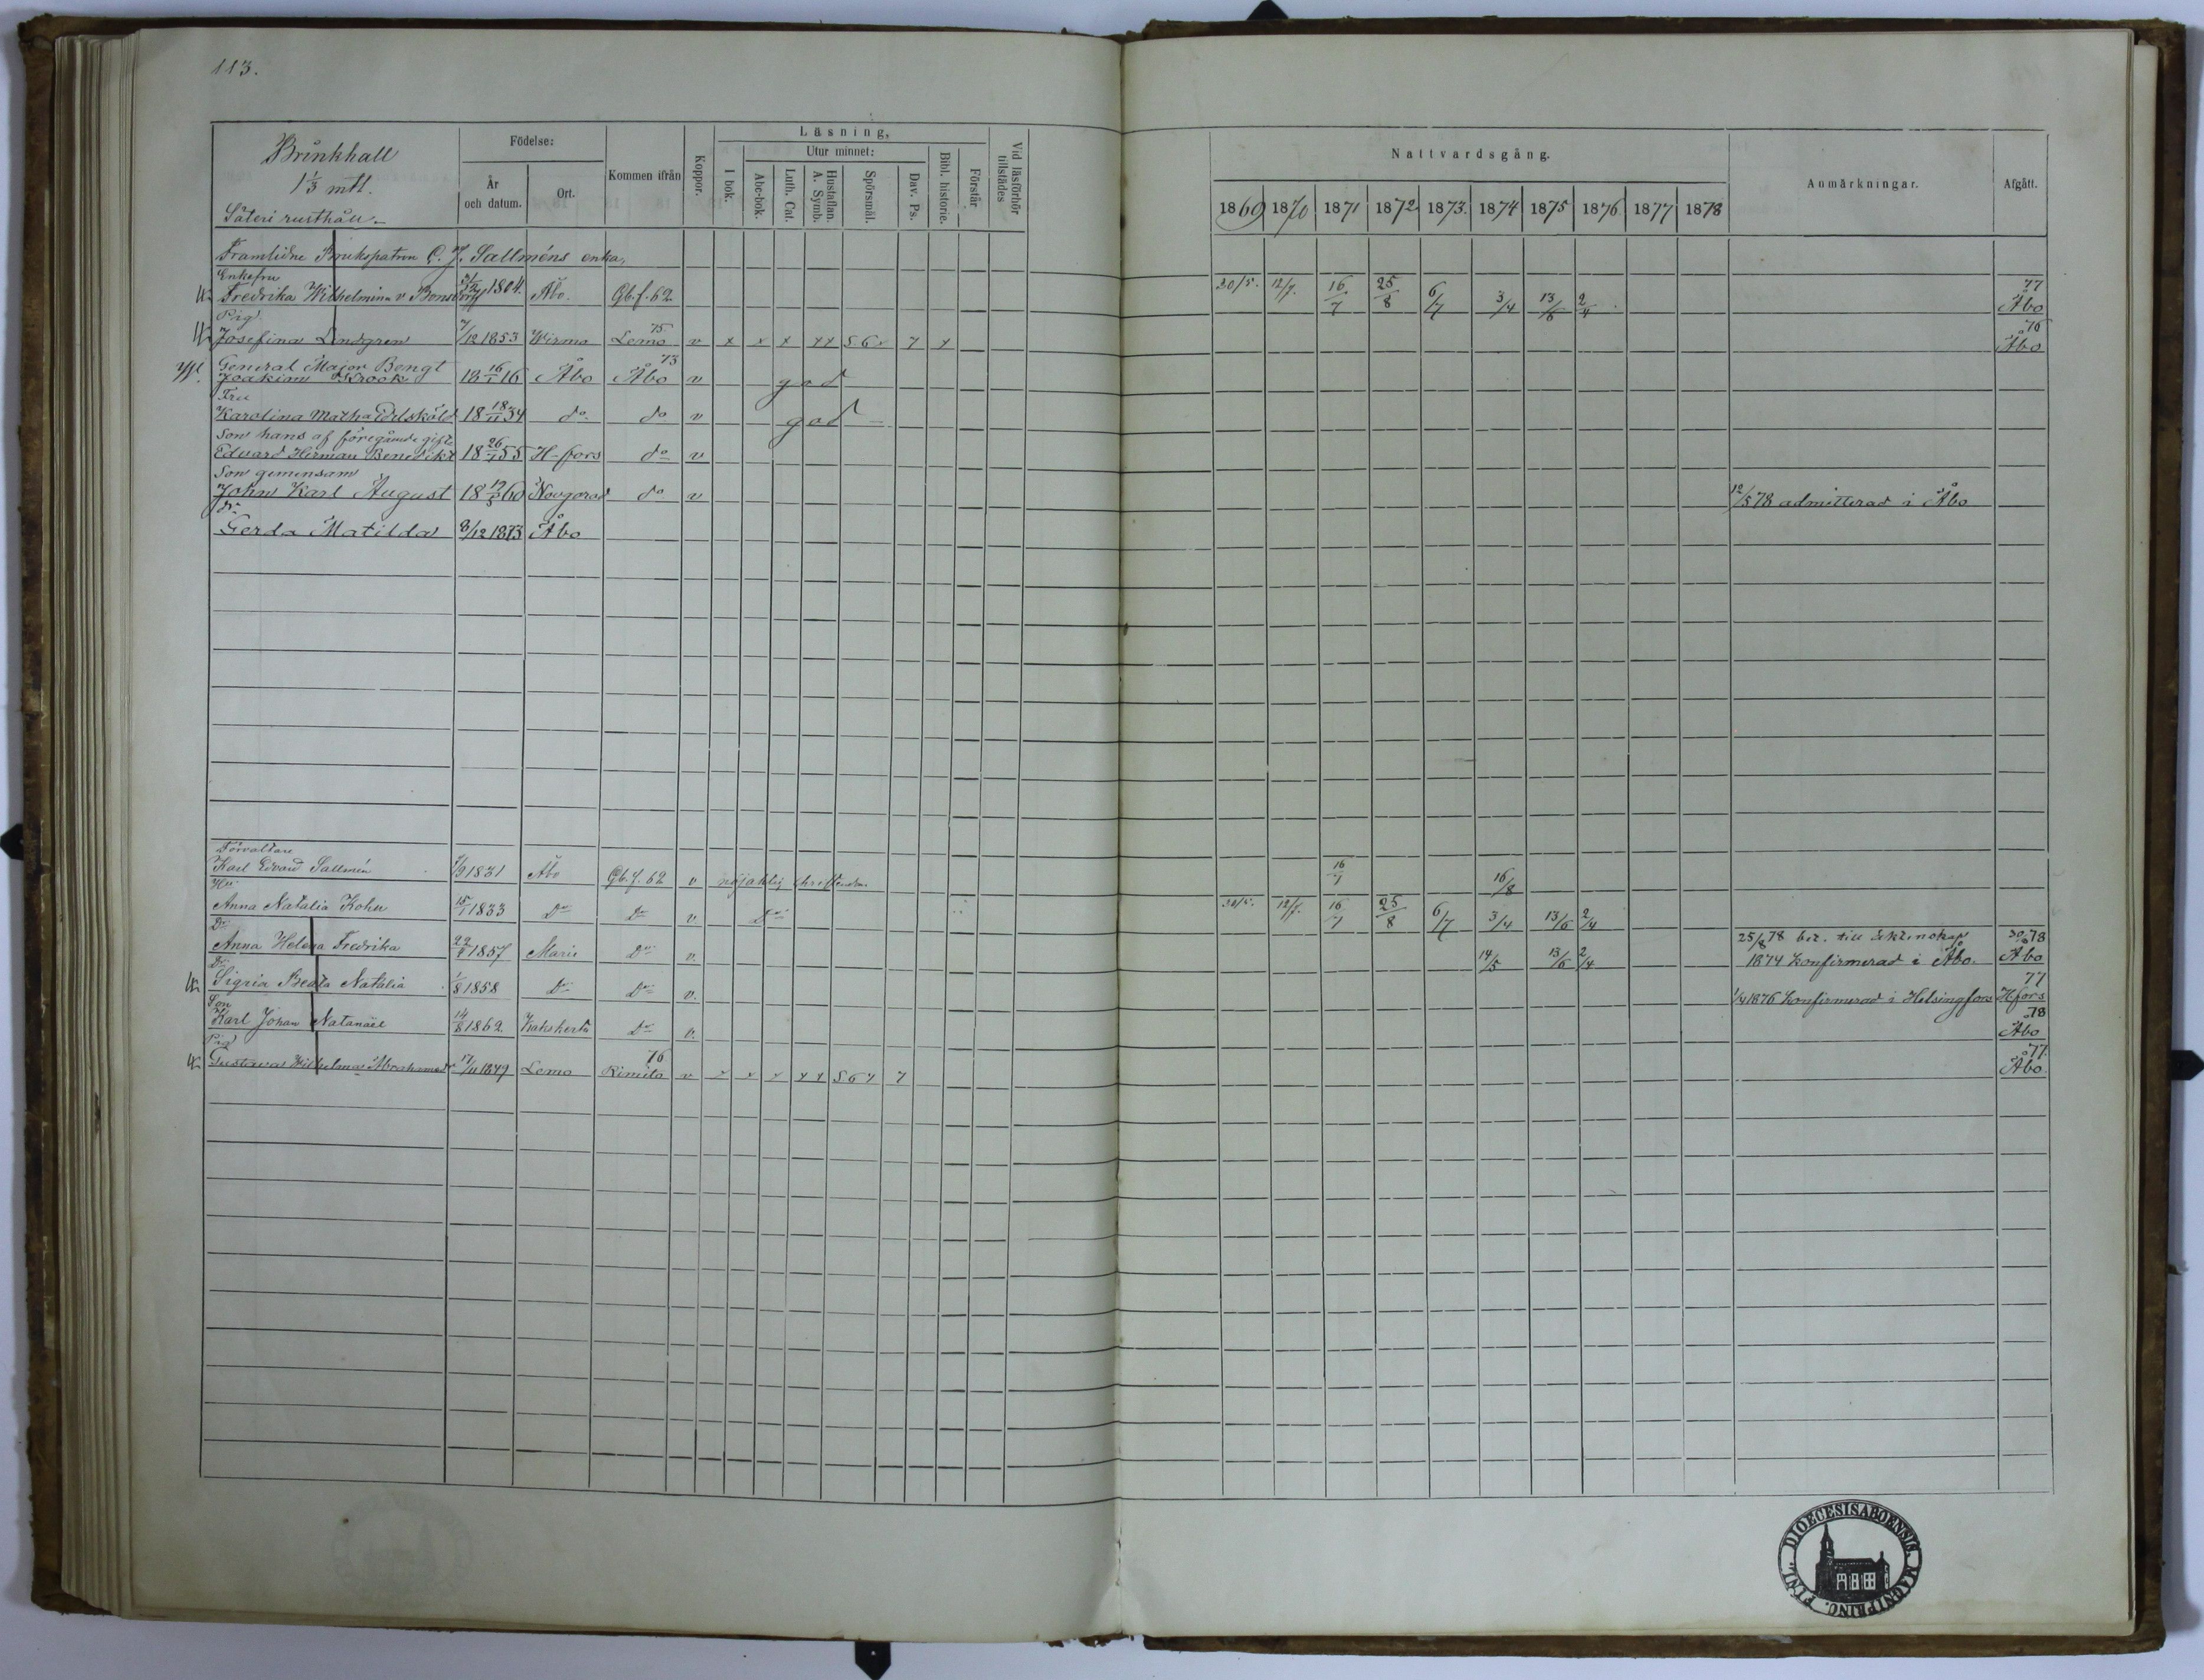 113.
Brinkhall
1 1/3 mtl.
Säteri rusthåll
Födelse:
År och datum.
Ort.
Kommen ifrån
Koppor.
Läsning,
I bok.
Utur minnet:
Abc-bok.
Luth. Cat.
Hustaflan. A. Symb.
Spörsmål.
Dav. Ps.
Bibl. historie.
Förstår
Vid läsförhör tillstädes
Nattvardsgång.
1869 1870 1871 1872 1873. 1874 1875 1876 1877 1878
Anmärkningar.
Afgått.
Framlidne Brukspatron C. J. Sallméns enka,
Enkefru 77
Fredrika Wilhelmina v. 1804. Åbo. Gb. f. 62 30/5. 12/7. 16/7 25/8 6/7 3/4 13/6 2/4 Åbo
Pig. 75 76
Josefina Lindgren 7/12 1853 Wirmo Lemo v x x x xx 5 6 x 7 x Åbo
General Major Bengt 73
Joakim Krook 18 16/1 16 Åbo Åbo v god
Fru
Karolina Matha Edelsköld 18 18/11 34 do do v god
Son hans af föregående gifte
Edvard Herman Benedikt 18 26/1 55 H-fors do v
Son gemensam
John Karl August 18 19/5 60 Novgorod do v 12/5 78 admitterad i Åbo
Dr
Gerda Matilda 8/12 1873 Åbo
Förvaltare
Karl Edvard Sallmén 1/9 1831 Åbo Gb. f. 62 v nöjaktig christendom 16/7 16/8
Hu:
Anna Natalia Kohn 15/1 1833 Do Do v. Do 30/5. 12/7. 16/7 25/8 6/7 3/4 13/6 2/4
Dr: 25/8 78 bet. till äktenskap 78
Anna Helena Fredrika 22/4 1857 Marie Do v. 14/5 13/6 2/4 1874 konfirmerad i Åbo. Åbo
Dr: 77
Sigrid Beata Natalia 1/8 1858 Do Do v. 1/4 1876 konfirmerad i Helsingfors Hfors
Son 78
Karl Johan Natanael 14/8 1862. Do v. Åbo
Pig 76 77.
Gustava Wilhelmina Abrahamsdr 17/11 1849 Lemo Rimito v x x x x x 5 6 7 7 Åbo.
DIOECESIS ABOENSIS. MAGNI PRINC. FINL.